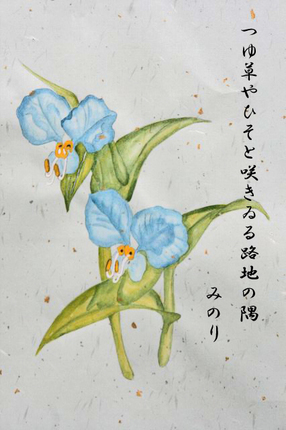 つゆ草やひそと咲きゐる路地の隅
みのり